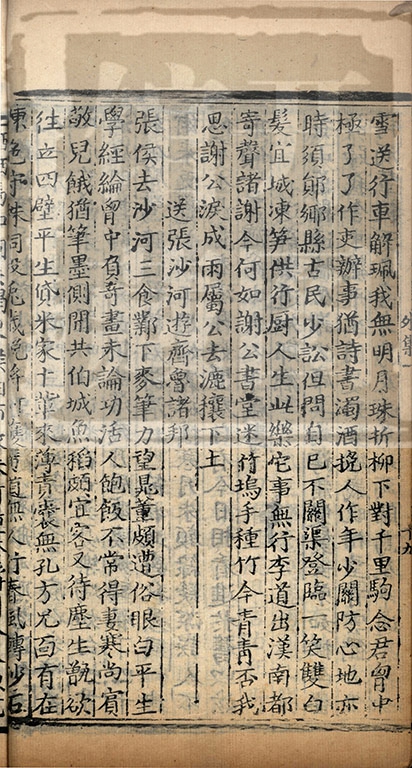 雪送行車解珮我無明月珠折柳下對千里駒念君胷中
極了了作吏辦事猶詩書濁酒挽人作年少關防心地亦
時須鄖鄉縣古民少訟但問自已不關渠登臨一笑雙白
髮宜城凍笋供行厨人生此樂它事無行李道出漢南都
寄聲諸謝今何如謝公書堂迷竹塢手種竹今青青否我
思謝公淚成雨屬公去灑穰下土
送張沙河遊齊魯諸邦
張侯去沙河三食鄴下麥筆力望晁董頗遭俗眼白平生
學經綸胷中負奇畫未論功活人飽飯不常得妻寒尚賓
敬兒餓猶筆墨側聞共伯城魚稻頗宜客又待塵生甑欲
往立四壁平生貸米家十輩來薄責囊無孔方兄面有在
陳色
外集一
十九